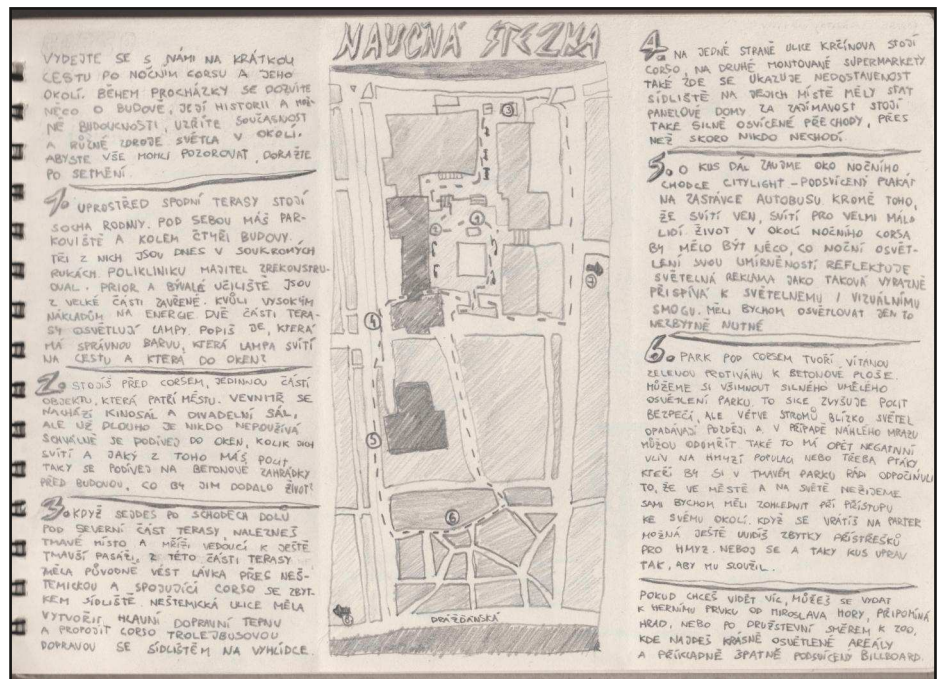 VYDEJTE SE S NÁMI NA KRÁTKOU
CESTU PO NOČNÍM CORSU A JEHO
OKOLÍ. BĚHEM PROCHÁZKY SE DOZVÍTE
NĚCO O BUDOVĚ, JEJÍ HISTORII A MOŽ-
NÉ BUDOUCNOSTI, UZŘÍTE SOUČASNOST
A RŮZNÉ ZDROJE SVĚTLA V OKOLÍ.
ABYSTE VŠE MOHLI POZOROVAT, DORAŽTE
PO SETMĚNÍ.
1. UPROSTŘED SPODNÍ TERASY STOJÍ
SOCHA RODINY. POD SEBOU MÁŠ PAR-
KOVIŠTĚ A KOLEM ČTYŘI BUDOVY.
TŘI Z NICH JSOU DNES V SOUKROMÝCH
RUKÁCH. POLIKLINIKU MAJITEL ZREKONSTRU-
OVAL. PRIOR A BÝVALÉ UČILIŠTĚ JSOU
Z VELKÉ ČÁSTI ZAVŘENÉ. KVŮLI VYSOKÝM
NÁKLADŮM NA ENERGIE. DVĚ ČÁSTI TERA-
SY OSVĚTLUJÍ LAMPY. POPIŠ JE, KTERÁ
MÁ SPRÁVNOU BARVU, KTERÁ LAMPA SVÍTÍ
NA CESTU A KTERÁ DO OKEN?
2. STOJÍŠ PŘED CORSEM, JEDINNOU ČÁSTÍ
OBJEKTU, KTERÁ PATŘÍ MĚSTU. VEVNITŘ SE
NACHÁZÍ KINOSÁL A DIVADELNÍ SÁL,
ALE UŽ DLOUHO JE NIKDO NEPOUŽÍVÁ
SCHVÁLNĚ SE PODÍVEJ DO OKEN, KOLIK JICH
SVÍTÍ A JAKÝ Z TOHO MÁŠ POCIT
TAKY SE PODÍVEJ NA BETONOVÉ ZAHRÁDKY
PŘED BUDOVOU, CO BY JIM DODALO ŽIVOT?
3. KDYŽ SEJDEŠ PO SCHODECH DOLŮ
POD SEVERNÍ ČÁST TERASY, NALEZNEŠ
TMAVÉ MÍSTO A MŘÍŽI VEDOUCÍ K JEŠTĚ
TMAVŠÍ PASÁŽI, Z TÉTO ČÁSTI TERASY
MĚLA PŮVODNĚ VÉST LÁVKA PŘES NEŠ-
TĚMICKOU A SPOJUJÍCÍ CORSO SE ZBYT-
KEM SÍDLIŠTĚ. NEŠTĚMICKÁ ULICE MĚLA
VYTVOŘIT HLAVNÍ DOPRAVNÍ TEPNU
A PROPOJIT CORSO TROLEJBUSOVOU
DOPRAVOU SE SÍDLIŠTĚM NA VYHLÍDCE.
NAUČNÁ STEZKA
3
1
2
7
4
5
6
8
DRÁŽĎANSKÁ
4. NA JEDNÉ STRANĚ ULICE KRŽÍNOVA STOJÍ
CORSO, NA DRUHÉ MONTOVANÉ SUPERMARKETY
TAKÉ ZDE SE UKAZUJE NEDOSTAVENOST
SÍDLIŠTĚ NA JEJICH MÍSTĚ MĚLY STÁT
PANELOVÉ DOMY ZA ZAJÍMAVOST STOJÍ
TAKÉ SILNĚ OSVÍCENÉ PŘECHODY, PŘES
NĚŽ SKORO NIKDO NECHODÍ
5. O KUS DÁL ZAUJME OKO NOČNÍHO
CHODCE CITYLIGHT - PODSVÍCENÝ PLAKÁT
NA ZASTÁVCE AUTOBUSU KROMĚ TOHO,
ŽE SVÍTÍ VEN, SVÍTÍ PRO VELMI MÁLO
LIDÍ ŽIVOT V OKOLÍ NOČNÍHO CORSA
BY MĚLO BÝT NĚCO, CO NOČNÍ OSVĚT-
LENÍ SVOU UMÍRNĚNOSTÍ REFLEKTUJE
SVĚTELNÁ REKLAMA JAKO TAKOVÁ VÝRAZNĚ
PŘISPÍVÁ K SVĚTELNÉMU I VIZUÁLNÍMU
SMOGU. MĚLI BYCHOM OSVĚTLOVAT JEN TO
NEZBYTNĚ NUTNÉ
6. PARK POD CORSEM TVOŘÍ VÍTANOU
ZELENOU PROTIVÁHU K BETONOVÉ PLOŠE.
MŮŽEME SI VŠIMNOUT SILNÉHO UMĚLÉHO
OSVĚTLENÍ PARKU. TO SICE ZVYŠUJE POCIT
BEZPEČÍ, ALE VĚTVE STROMŮ BLÍZKO SVĚTEL
OPADÁVAJÍ POZDĚJI A V PŘÍPADĚ NÁHLÉHO MRAZU
MŮŽOU ODUMŘÍT TAKÉ TO MÁ OPĚT NEGATIVNÍ
VLIV NA HMYZÍ POPULACI NEBO TŘEBA PTÁKY
KTEŘÍ BY SI V TMAVÉM PARKU RÁDI ODPOČINULI
TO, ŽE VE MĚSTĚ A NA SVĚTĚ NEŽIJEME
SAMI BYCHOM MĚLI ZOHLEDNIT PŘI PŘÍSTUPU
KE SVÉMU OKOLÍ. KDYŽ SE VRÁTÍŠ NA PARTER
MOŽNÁ JEŠTĚ UVIDÍŠ ZBYTKY PŘÍSTŘEŠKŮ
PRO HMYZ. NEBOJ SE A TAKY KUS UPRAV
TAK, ABY MU SLOUŽIL.
POKUD CHCEŠ VIDĚT VÍC, MŮŽEŠ SE VYDAT
K HERNÍMU PRVKU OD MIROSLAVA HORY, PŘIPOMÍNÁ
HRAD, NEBO PO DRUŽSTEVNÍ SMĚREM K ZOO,
KDE NAJDEŠ KRÁSNĚ OSVĚTLENÉ AREÁLY
A PŘÍKLADNĚ ŠPATNĚ PODSVÍCENÝ BILLBOARD.